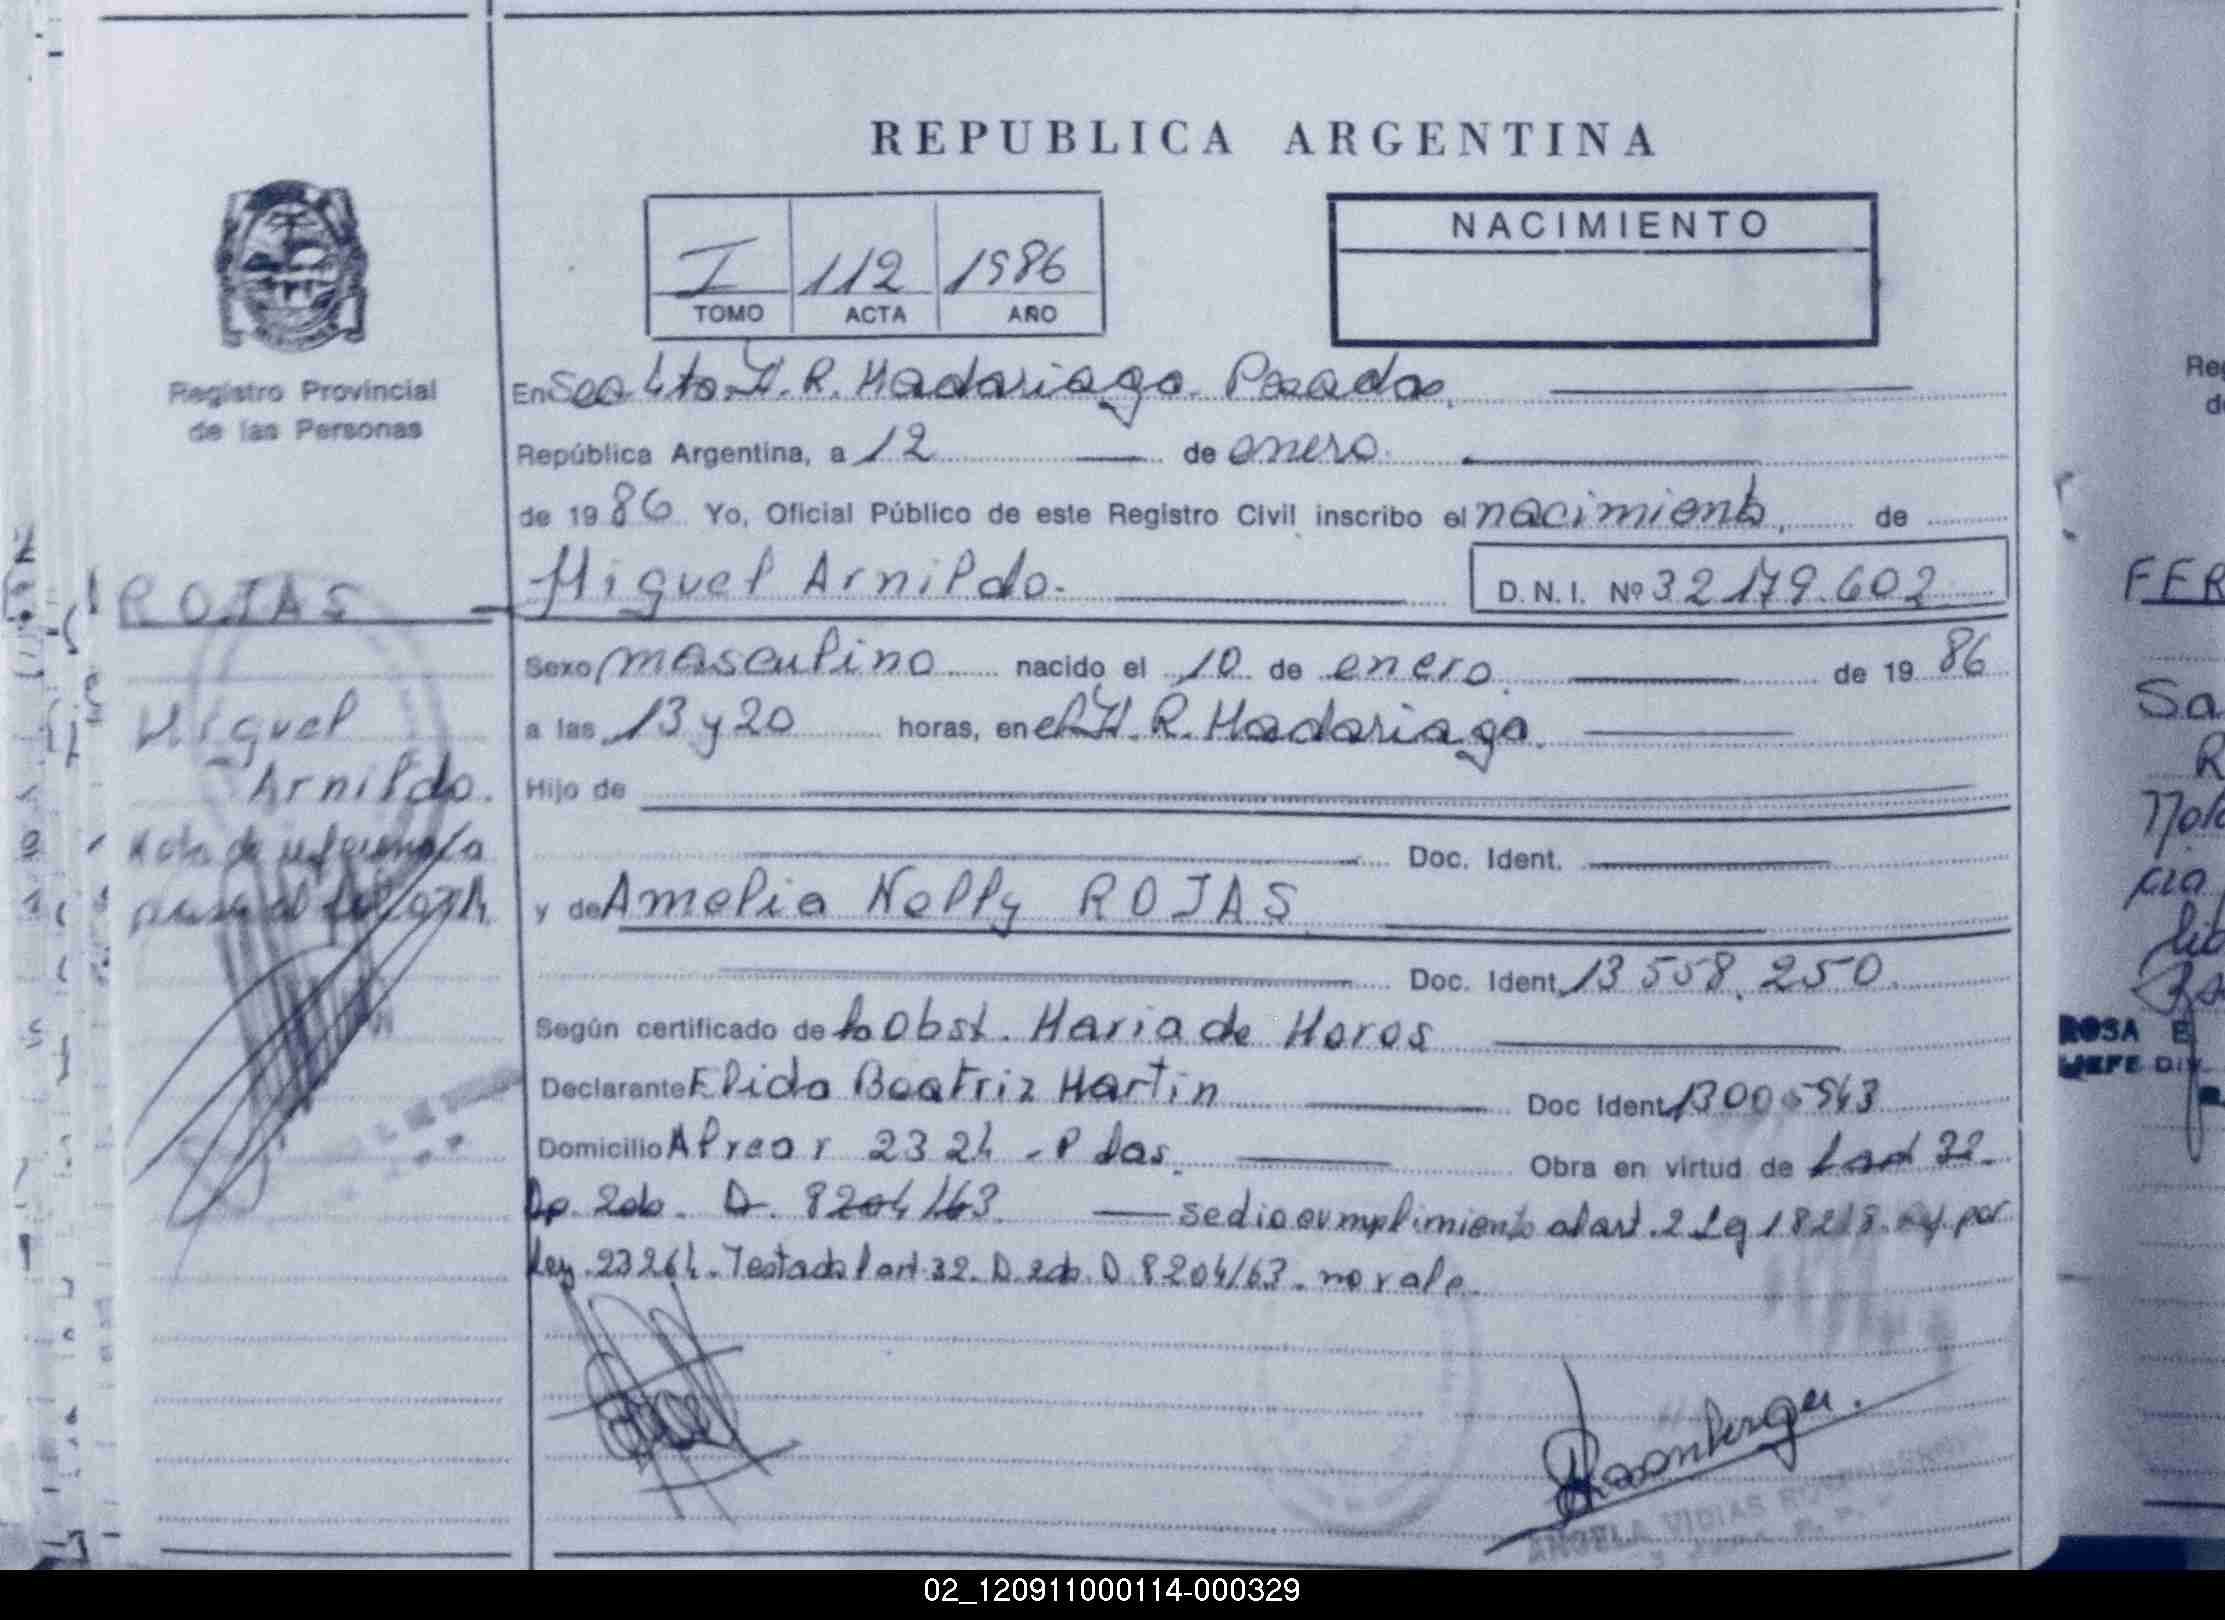 REPUBLICA ARGENTINA
I 112 1986
TOMO ACTA AÑO
NACIMIENTO
Registro Provincial
de las Personas
En Sec 4ta H. R. Madariaga. Posadas,
República Argentina, a 12 de enero.
de 19 86 Yo, Oficial Público de este Registro Civil inscribo el nacimiento, de
Miguel Arnildo.
D.N.I. Nº 32 179.602
ROJAS
Miguel
Arnildo.
Nota de referencia
Sexo masculino nacido el 10 de enero. de 19 86
a las 13 y 20 horas, en el H. R. Madariaga.
Hijo de
Doc. Ident.
y de Amelia Nelly ROJAS
Doc. Ident. 13 558.250.
Según certificado de la Obst. Maria de Moros
Declarante Elida Beatriz Martin Doc Ident. 13005543
Domicilio Alvear 2324 - Pdas. Obra en virtud de art 32.
Dp. 2do. D. 8204/63 se dio cumplimiento al art. 2 Ley 18218. por
ley. 23264. Testado art. 32. D. 2do. D 8204/63. no vale.
Rosenberger.
ANGELA VIDIAS
FER
Sa
R
lib
ROSA E
JEFE DIV
Reg
de
02_120911000114-000329